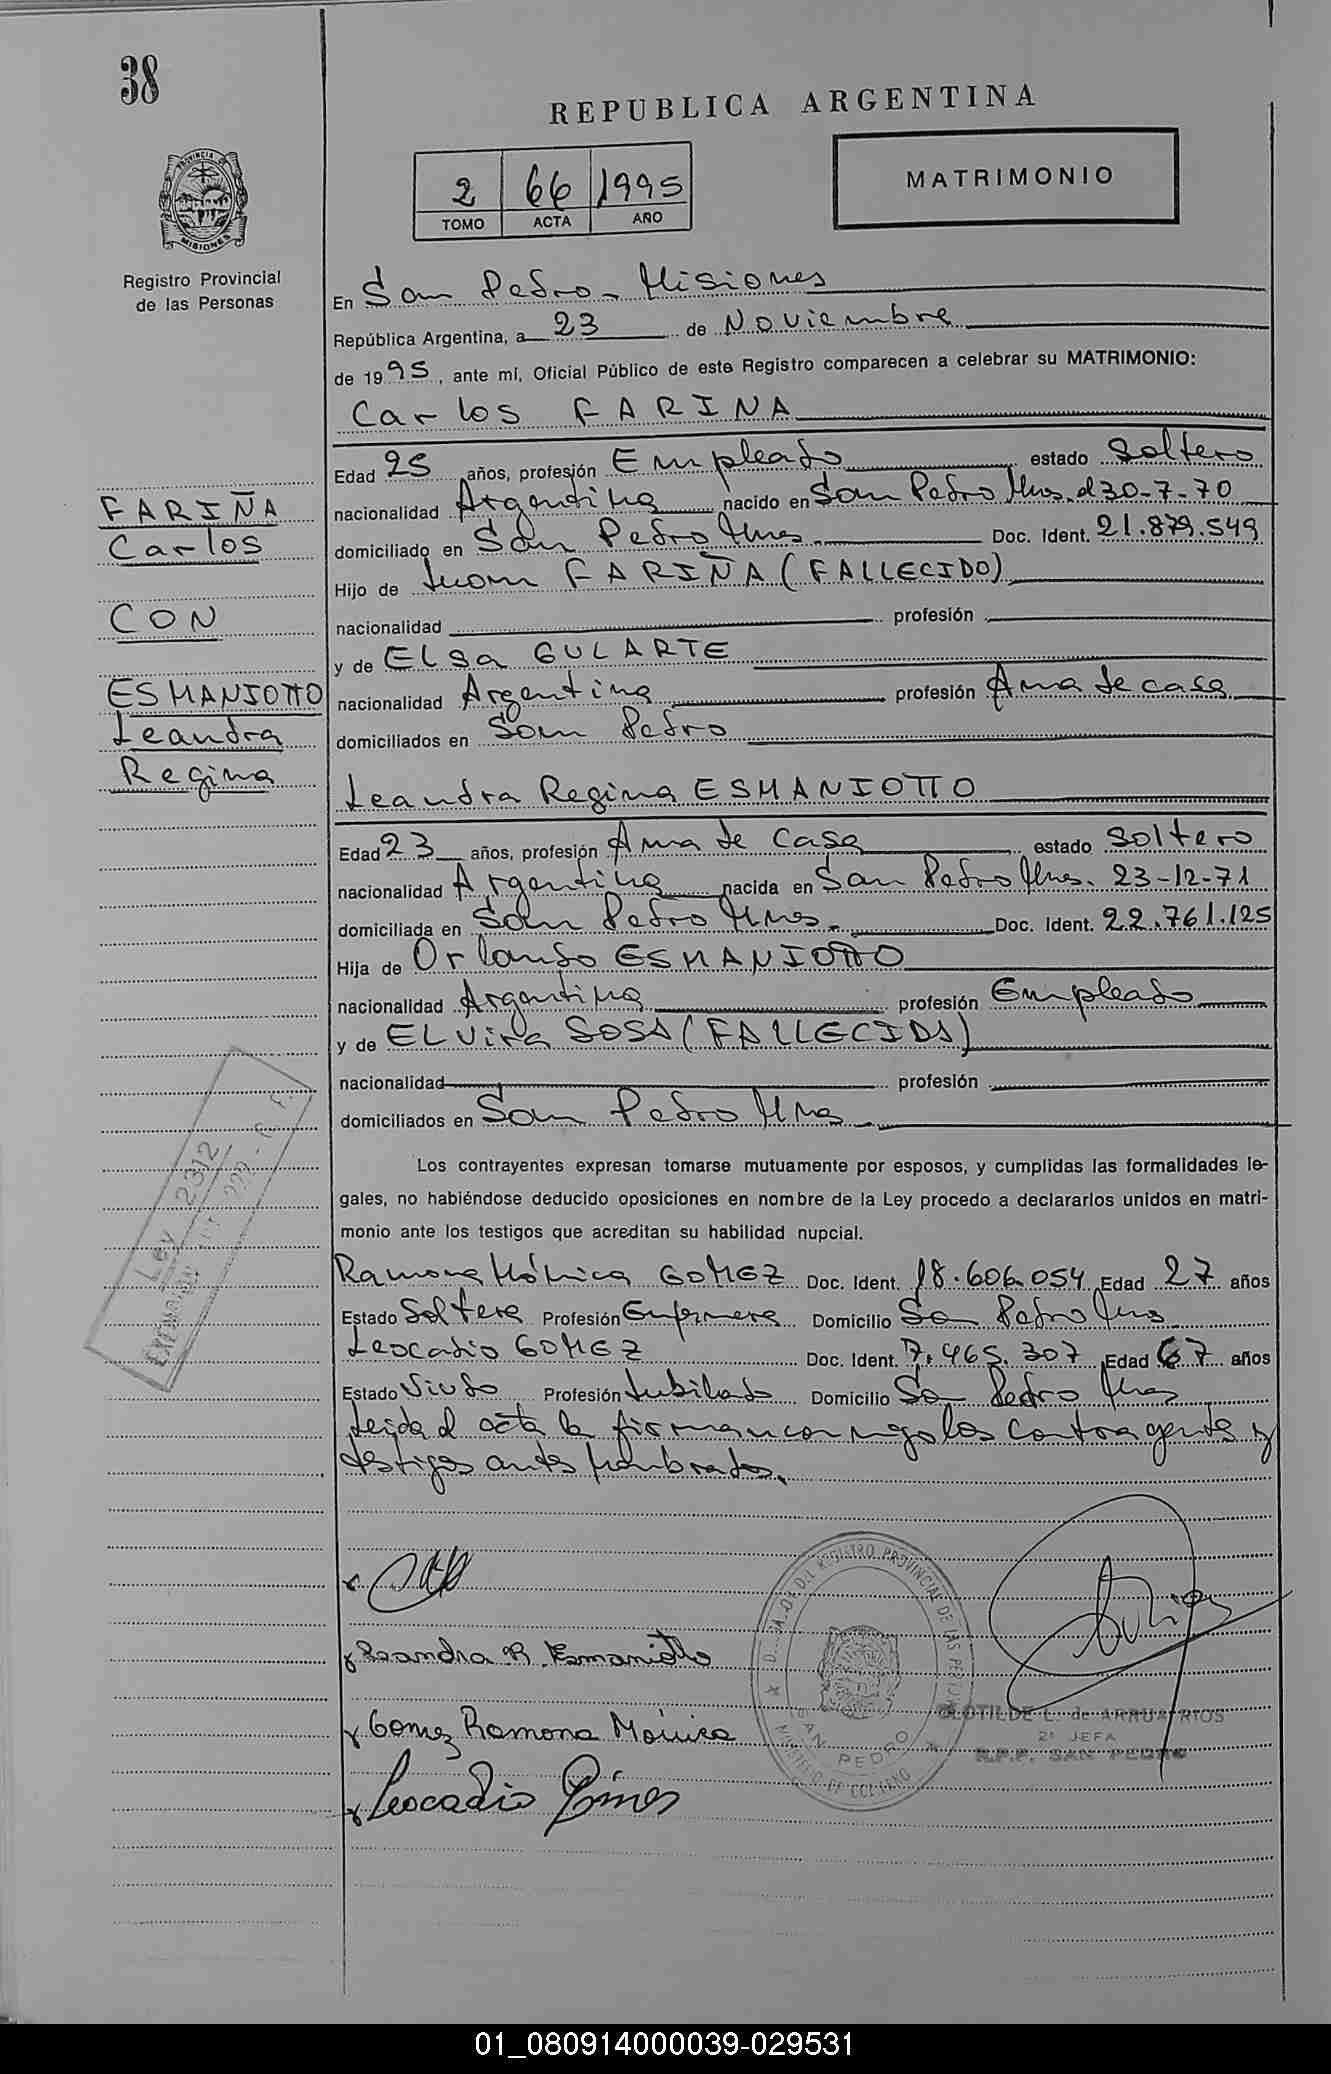 38
REPUBLICA ARGENTINA
2 66 1995
TOMO ACTA AÑO
MATRIMONIO
PROVINCIA DE MISIONES
Registro Provincial
de las Personas
En San Pedro - Misiones
República Argentina, a 23 de Noviembre
de 1995, ante mí, Oficial Público de este Registro comparecen a celebrar su MATRIMONIO:
Carlos FARINA
Edad 25 años, profesión Empleado estado Soltero
nacionalidad Argentina nacido en San Pedro Mnes. el 30-7-70
domiciliado en San Pedro Mnes. Doc. Ident. 21.879.549
Hijo de Juan FARIÑA (FALLECIDO)
nacionalidad profesión
y de ELSA GULARTE
nacionalidad Argentina profesión Ama de casa
domiciliados en San Pedro
FARIÑA
Carlos
CON
ESMANIOTTO
Leandra
Regina
Leandra Regina ESMANIOTTO
Edad 23 años, profesión Ama de casa estado Soltero
nacionalidad Argentina nacida en San Pedro Mnes. 23-12-71
domiciliada en San Pedro Mnes. Doc. Ident. 22.761.125
Hija de Orlando ESMANIOTTO
nacionalidad Argentina profesión Empleado
y de ELvira SOSA (FALLECIDA)
nacionalidad profesión
domiciliados en San Pedro Mnes
Los contrayentes expresan tomarse mutuamente por esposos, y cumplidas las formalidades le-
gales, no habiéndose deducido oposiciones en nombre de la Ley procedo a declararlos unidos en matri-
monio ante los testigos que acreditan su habilidad nupcial.
Ramona Mónica GOMEZ Doc. Ident. 18.606.054 Edad 27 años
Estado Soltera Profesión Enfermera Domicilio San Pedro Mnes
Leocadio GOMEZ Doc. Ident. 7.465.307 Edad 67 años
Estado Viudo Profesión Jubilado Domicilio San Pedro Mnes
Leída el acta la firman conmigo los contrayentes y
testigos antes nombrados.
Ley 2312
Leandra R. Esmaniotto
Gomez Ramona Mónica
Leocadio Gómes
REGISTRO PROVINCIAL DE LAS PERSONAS
SAN PEDRO
MINISTERIO DE GOBIERNO
CLOTILDE L. de ARRUA RIOS
2ª JEFA
R.P.P. SAN PEDRO
01_080914000039-029531